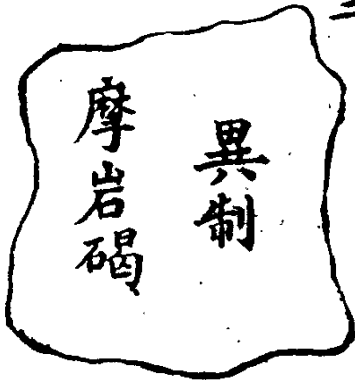 異制
摩岩碣